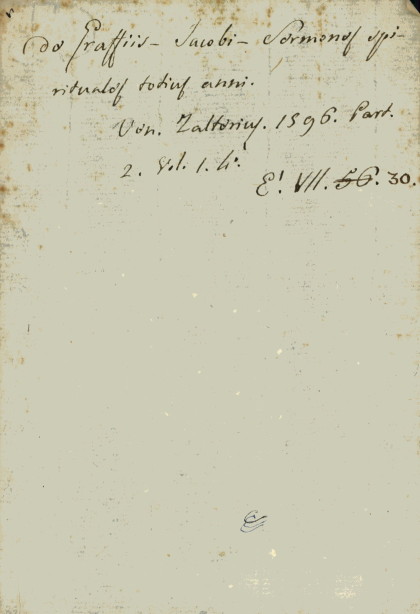 de Graffiis - Jacobi - Sermones spi-
rituales totius anni.
Ven. Zalterius. 1596. Part.
2. Vol. 1. 4°.
E! VII. 56. 30.